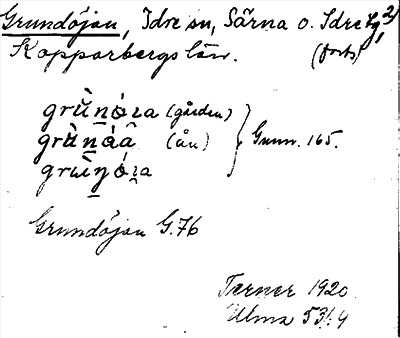 Grundöjan, Idre sn, Särna o. Idre tg, 2)
Kopparbergs län. (forts)
grùn̠óɩa (gården)
grùn̠áâ (ån) } Gunn. 165.
grùŋóɩa
Grundöjan G.76
Terner 1920
Ulma 53:4